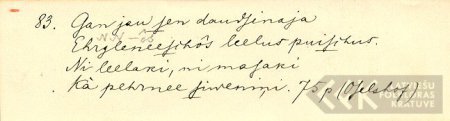 83. Gan jau jen daudzinaja
Ehrgleneeschôs leelus puischus.
N.N - ôs
Ni leelaki, ni masaki
Kà pehrnee siweniņi. 75 p (Ofelshof)
LATVIEŠU
FOLKLORAS
KRĀTUVE